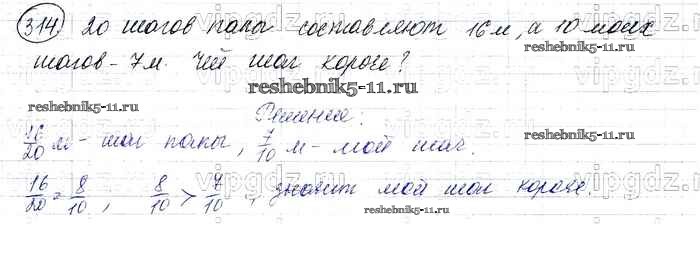 314. 20 шагов папы составляют 16 м, а 10 моих
шагов - 7 м. Чей шаг короче?
reshebnik5-11.ru
reshebnik5-11.ru
reshebnik5-11.ru
Решение:
16/20 м - шаг папы, 7/10 м - мой шаг.
vipgdz.ru vipgdz.ru vipgdz.ru
16/20 = 8/10, 8/10 > 7/10, значит мой шаг короче.
reshebnik5-11.ru
reshebnik5-11.ru